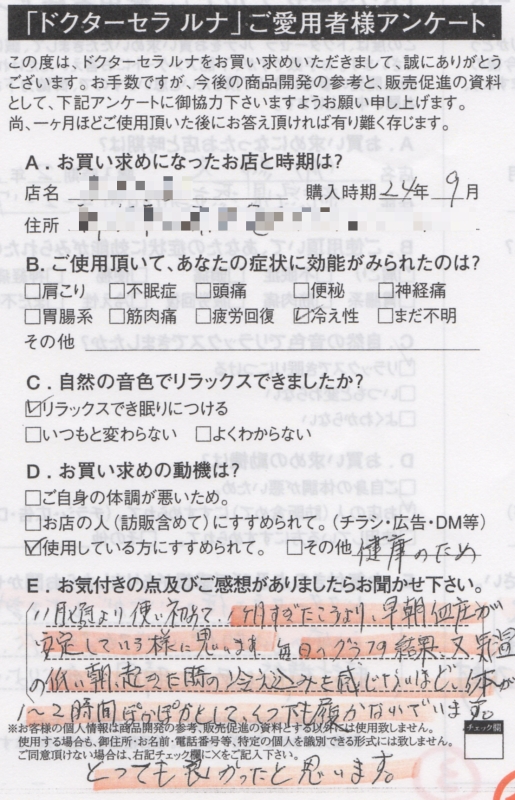 「ドクターセラ ルナ」ご愛用者様アンケート
この度は、ドクターセラルナをお買い求めいただきまして、誠にありがとう
ございます。お手数ですが、今後の商品開発の参考と、販売促進の資料
として、下記アンケートに御協力下さいますようお願い申し上げます。
尚、一ヶ月ほどご使用頂いた後にお答え頂ければ有り難く存じます。
A．お買い求めになったお店と時期は?
店名 購入時期 24年 9月
住所
B．ご使用頂いて、あなたの症状に効能がみられたのは?
□肩こり □不眠症 □頭痛 □便秘 □神経痛
□胃腸系 □筋肉痛 □疲労回復 ☑冷え性 □まだ不明
その他
C．自然の音色でリラックスできましたか?
☑リラックスでき眠りにつける
□いつもと変わらない □よくわからない
D．お買い求めの動機は?
□ご自身の体調が悪いため。
□お店の人(訪販含めて)にすすめられて。(チラシ・広告・DM等)
☑使用している方にすすめられて。 □その他 健康のため
E．お気付きの点及びご感想がありましたらお聞かせ下さい。
11月頃より使い初めて、一ヶ月すぎたころより、早朝血圧が
安定している様に思います 毎日のグラフの結果、又気温
の低い朝、起きた時の冷え込みを感じないほど、体が
1〜2時間ぽかぽかとして、くつ下も履かないでいます。
※お客様の個人情報は商品開発の参考、販売促進の資料とする以外には使用致しません。
チェック欄
使用する場合も、御住所・お名前・電話番号等、特定の個人を識別できる形式には致しません。
ご同意頂けない場合は、右記チェック欄に×をご記入下さい。
とっても良かったと思います。